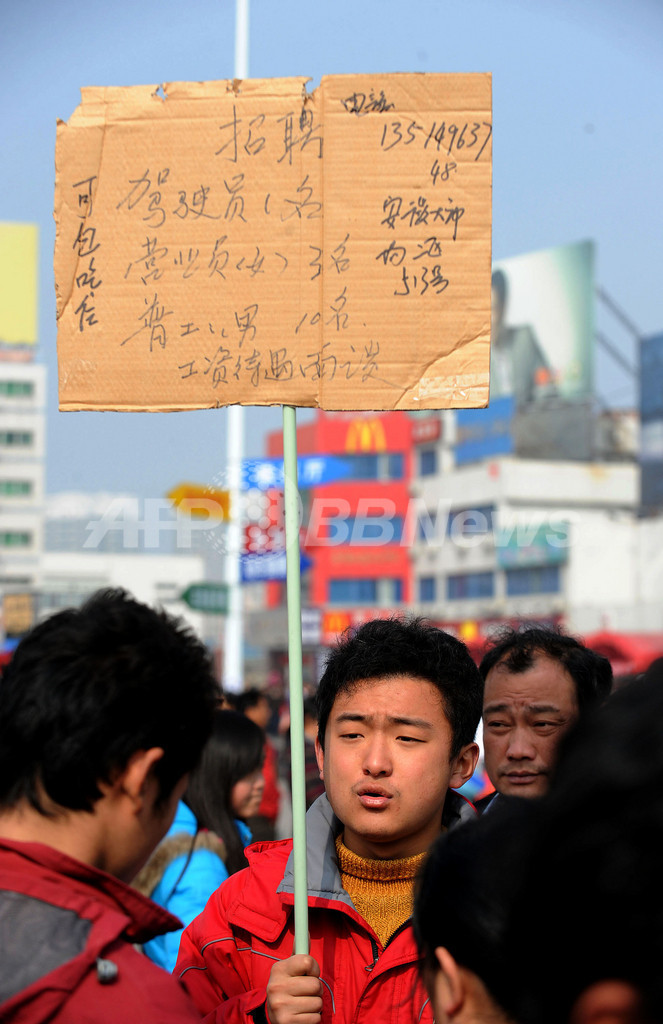 招聘
驾驶员1名
营业员(女)3名
普工 男 10名
工资待遇面谈
可包吃住
电话
1351149637
48
安设大冲
513号
AFP BBNews